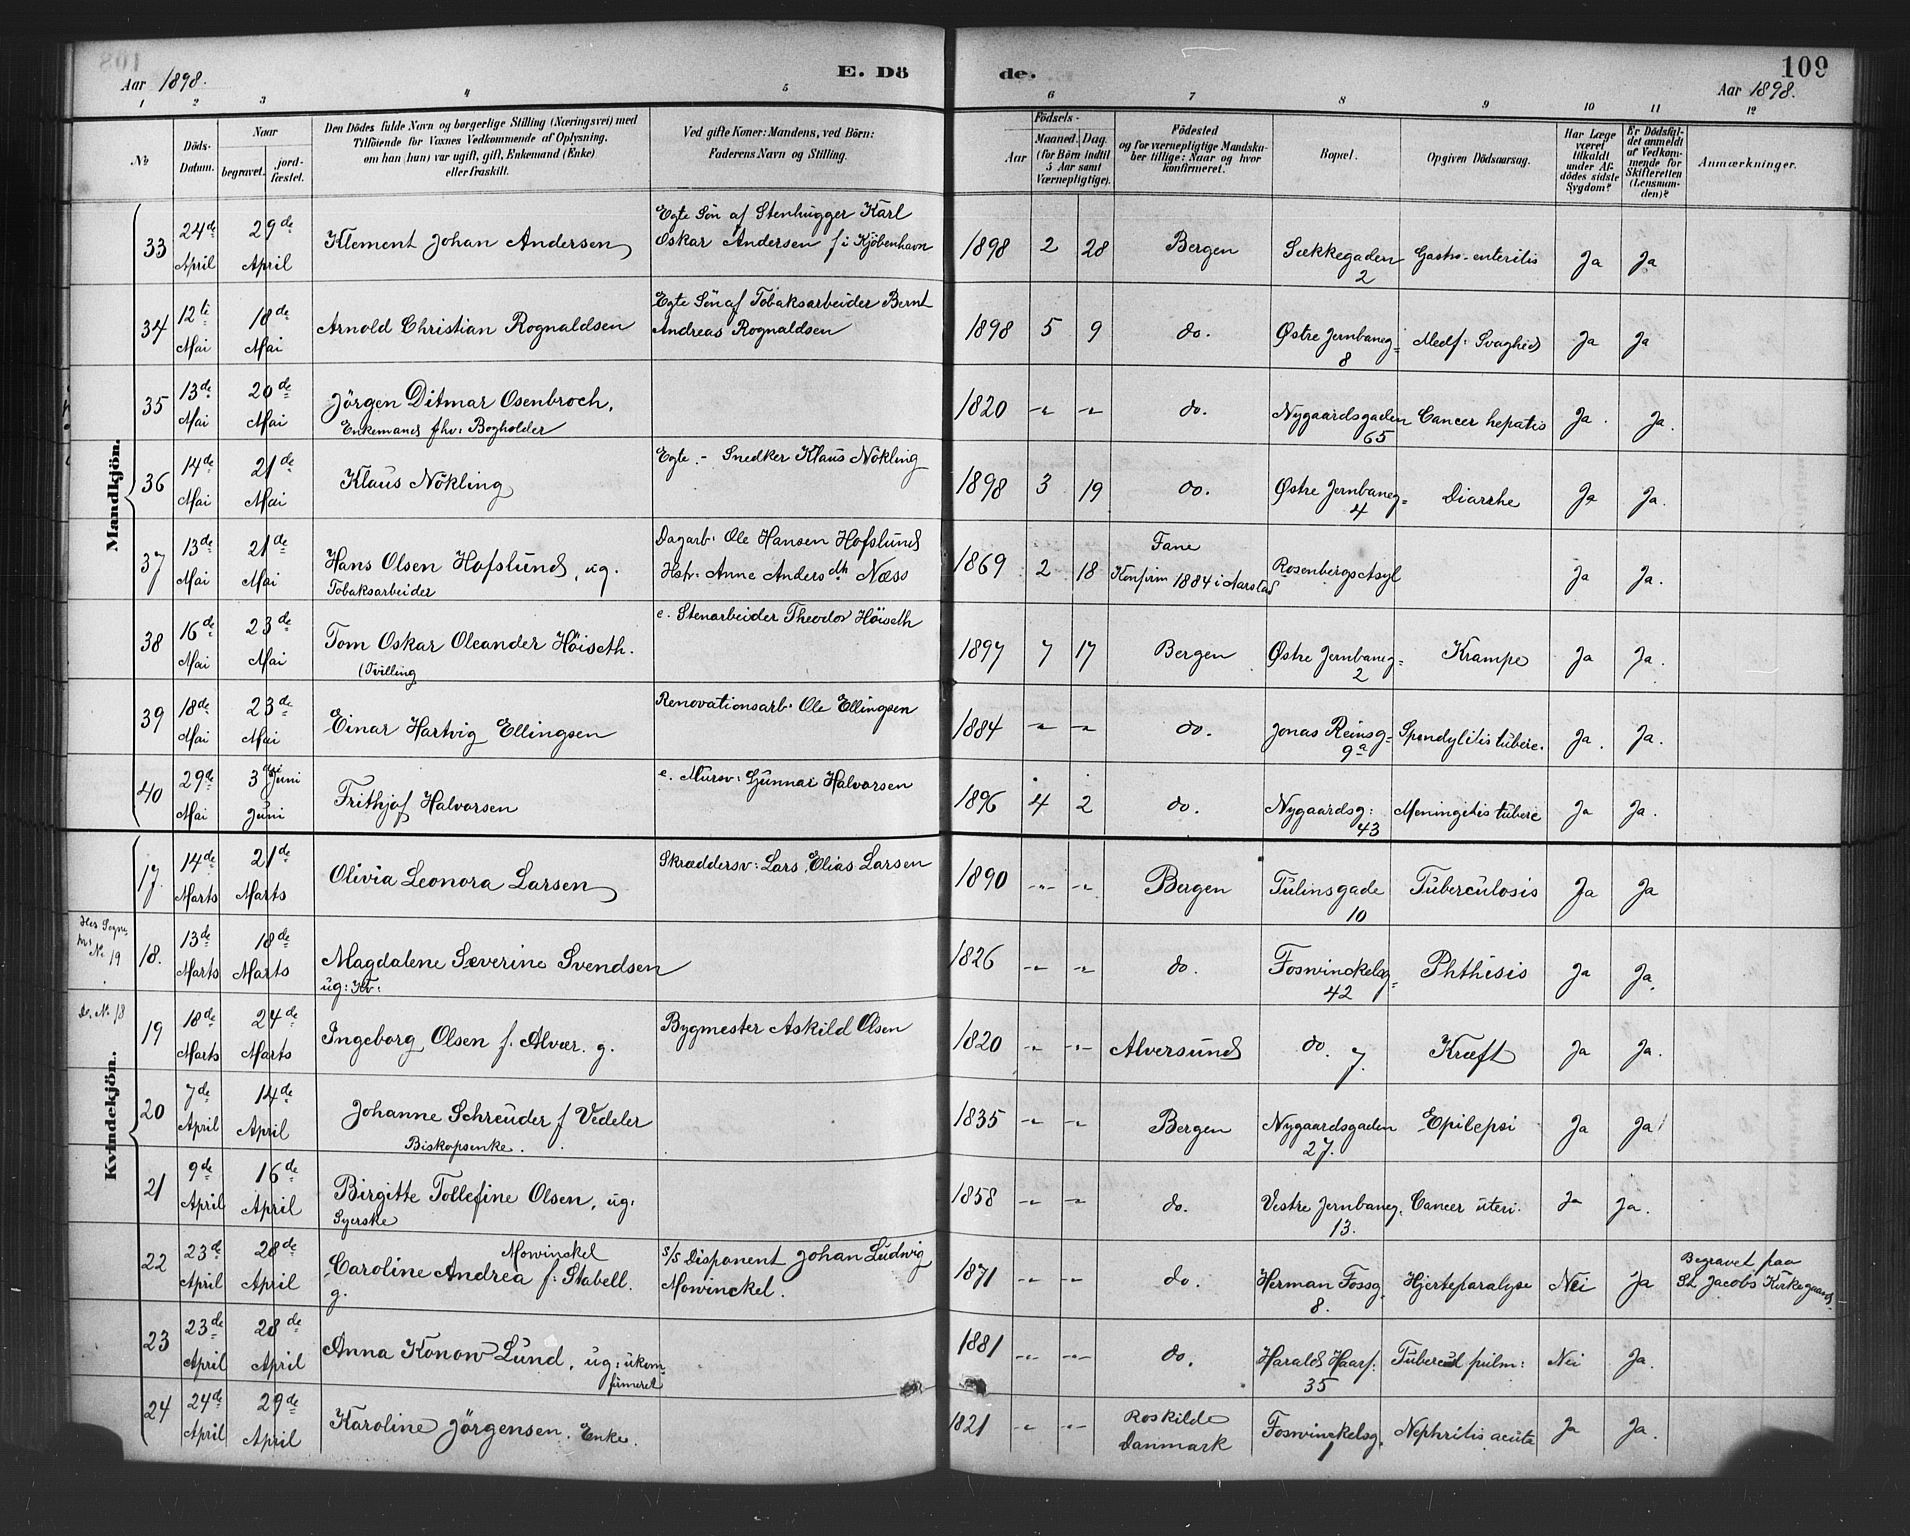 Aar 1898. E. Dö de. 109
Aar 1898.
1 2 3 4 5 6 7 8 9 10 11 12
No
Döds-Datum.
Naar
begravet.
jord-fæstet.
Den Dödes fulde Navn og borgerlige Stilling (Næringsvei) med
Tilföiende for Voxnes Vedkommende af Oplysning,
om han (hun) var ugift, gift, Enkemand (Enke)
eller fraskilt.
Ved gifte Koner: Mandens, ved Börn:
Faderens Navn og Stilling.
Födsels-
Aar
Maaned. Dag.
(for Börn indtil
5 Aar samt
Værnepligtige).
Födested
og for værnepligtige Mandska-
ber tillige: Naar og hvor
konfirmeret.
Bopæl.
Opgiven Dödsaarsag.
Har Læge
været
tilkaldt
under Af-
dödes sidste
Sygdom?
Er Dödsfal-
det anmeldt
af Vedkom-
mende for
Skifteretten
(Lensman-
den)?
Anmærkninger.
Mandkjön.
33 24de April 29de April Klement Johan Andersen Egte Sön af Stenhugger Karl Oskar Andersen f i Kjöbenhavn 1898 2 28 Bergen Sækkegaden 2 Gastro-enteritis Ja Ja
34 12te Mai 18de Mai Arnold Christian Rognaldsen Egte Sön af Tobaksarbeider Bernt Andreas Rognaldsen 1898 5 9 do. Østre Jernbaneg= 8 Medf: Svaghed Ja Ja
35 13de Mai 20de Mai Jörgen Ditmar Osenbroch, Enkemand fhv: Bogholder 1820 -"- -"- do. Nygaardsgaden 65 Cancer hepatis Ja. Ja.
36 14de Mai 21de Mai Klaus Nökling Egte.- Snedker Klaus Nökling 1898 3 19 do. Østre Jernbaneg= 4 Diarrhe Ja Ja.
37 13de Mai 21de Mai Hans Olsen Hofslund, ug. Tobaksarbeider Dagarb: Ole Hansen Hofslund Hstr: Anne Andersdtr Næss 1869 2 18 Fane Konfirm 1884 i Aarstad Rosenbergs Asyl Ja Ja.
38 16de Mai 23de Mai Tom Oskar Oleander Höiseth. (Tvilling e. Stenarbeider Theodor Höiseth 1897 7 17 Bergen Østre Jernbaneg= 2 Krampe Ja Ja.
39 18de Mai 23de Mai Einar Hartvig Ellingsen Renovationsarb: Ole Ellingsen 1884 -"- -"- do. Jonas Reinsg= 9a Spondylitis tuberc. Ja. Ja.
40 29de Mai 3die Juni Juni Frithjof Halvorsen e. Mursv: Gunnar Halvorsen 1896 4 2 do. Nygaardsg: 43 Meningitis tuberc Ja Ja.
Kvindekjön.
17. 14de Marts 21de Marts Olivia Leonora Larsen Skræddersv: Lars Elias Larsen 1890 -"- -"- Bergen Tulinsgade 10 Tuberculosis Ja Ja
No 19
18. 13de Marts 18de Marts Magdalene Severine Svendsen ug: Kv: 1826 -"- -"- do. Foswinckelsg= 42 Phthisis Ja Ja.
Do. No 18
19 18de Marts 24de Marts Ingeborg Olsen f. Alvær. g. Bygmester Askild Olsen 1820 -"- -"- Alversund do. 7. Kræft Ja Ja.
20 7de April 14de April Johanne Schreuder f Vedeler Biskopsenke. 1835 -"- -"- Bergen Nygaardsgaden 27. Epilepsi Ja Ja
21 9de April 16de April Birgitte Tollefine Olsen, ug: Syerske 1858 -"- -"- do. Vestre Jernbaneg. 13. Cancer uteri. Ja Ja.
22 23de April 28de April Mowinckel Caroline Andrea f: Stabell. g. s/s Disponent Johan Ludwig Mowinckel. 1871 -"- -"- do. Herman Fossg. 8. Hjerteparalyse Nei Ja Begravet paa St. Jacobs Kirkegaard.
23 23de April 28de April Anna Konow Lund, ug: ukonfirmeret 1881 -"- -"- do. Harald Haarf: 35 Tubercul pulm: Nei Ja.
24 24de April 29de April Karoline Jörgensen. Enke. 1821 -"- -"- Roskilde Danmark Foswinckelsg. 1 Nephritis acuta Ja Ja.